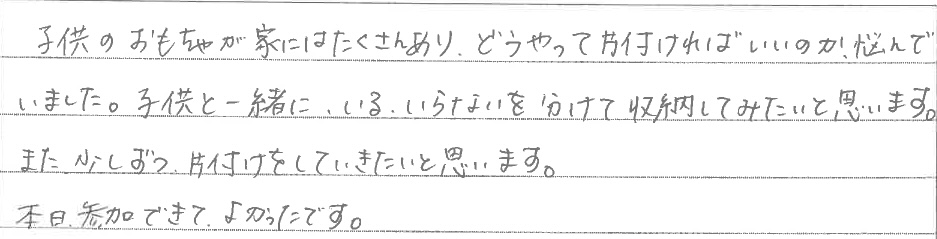 子供のおもちゃが家にはたくさんあり、どうやって片付ければいいのか、悩んで
いました。子供と一緒に、いる、いらないを分けて収納してみたいと思います。
また、少しずつ、片付けをしていきたいと思います。
本日、参加できて、よかったです。